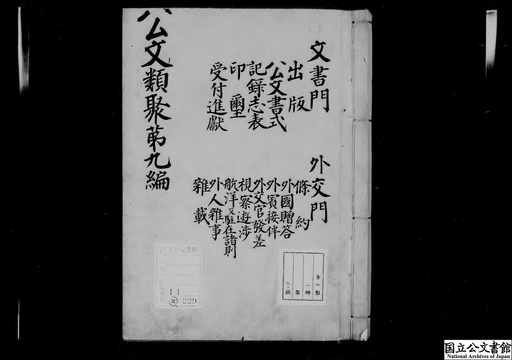 公文類聚第九編
文書門
出版
公文書式
記録志表
印璽
受付進獻
外交門
條約
外國贈答
外賓接伴
外交官發差
視察遊渉
航洋又駐在諸則
外人雜事
雜載
国立公文書館
National Archives of Japan